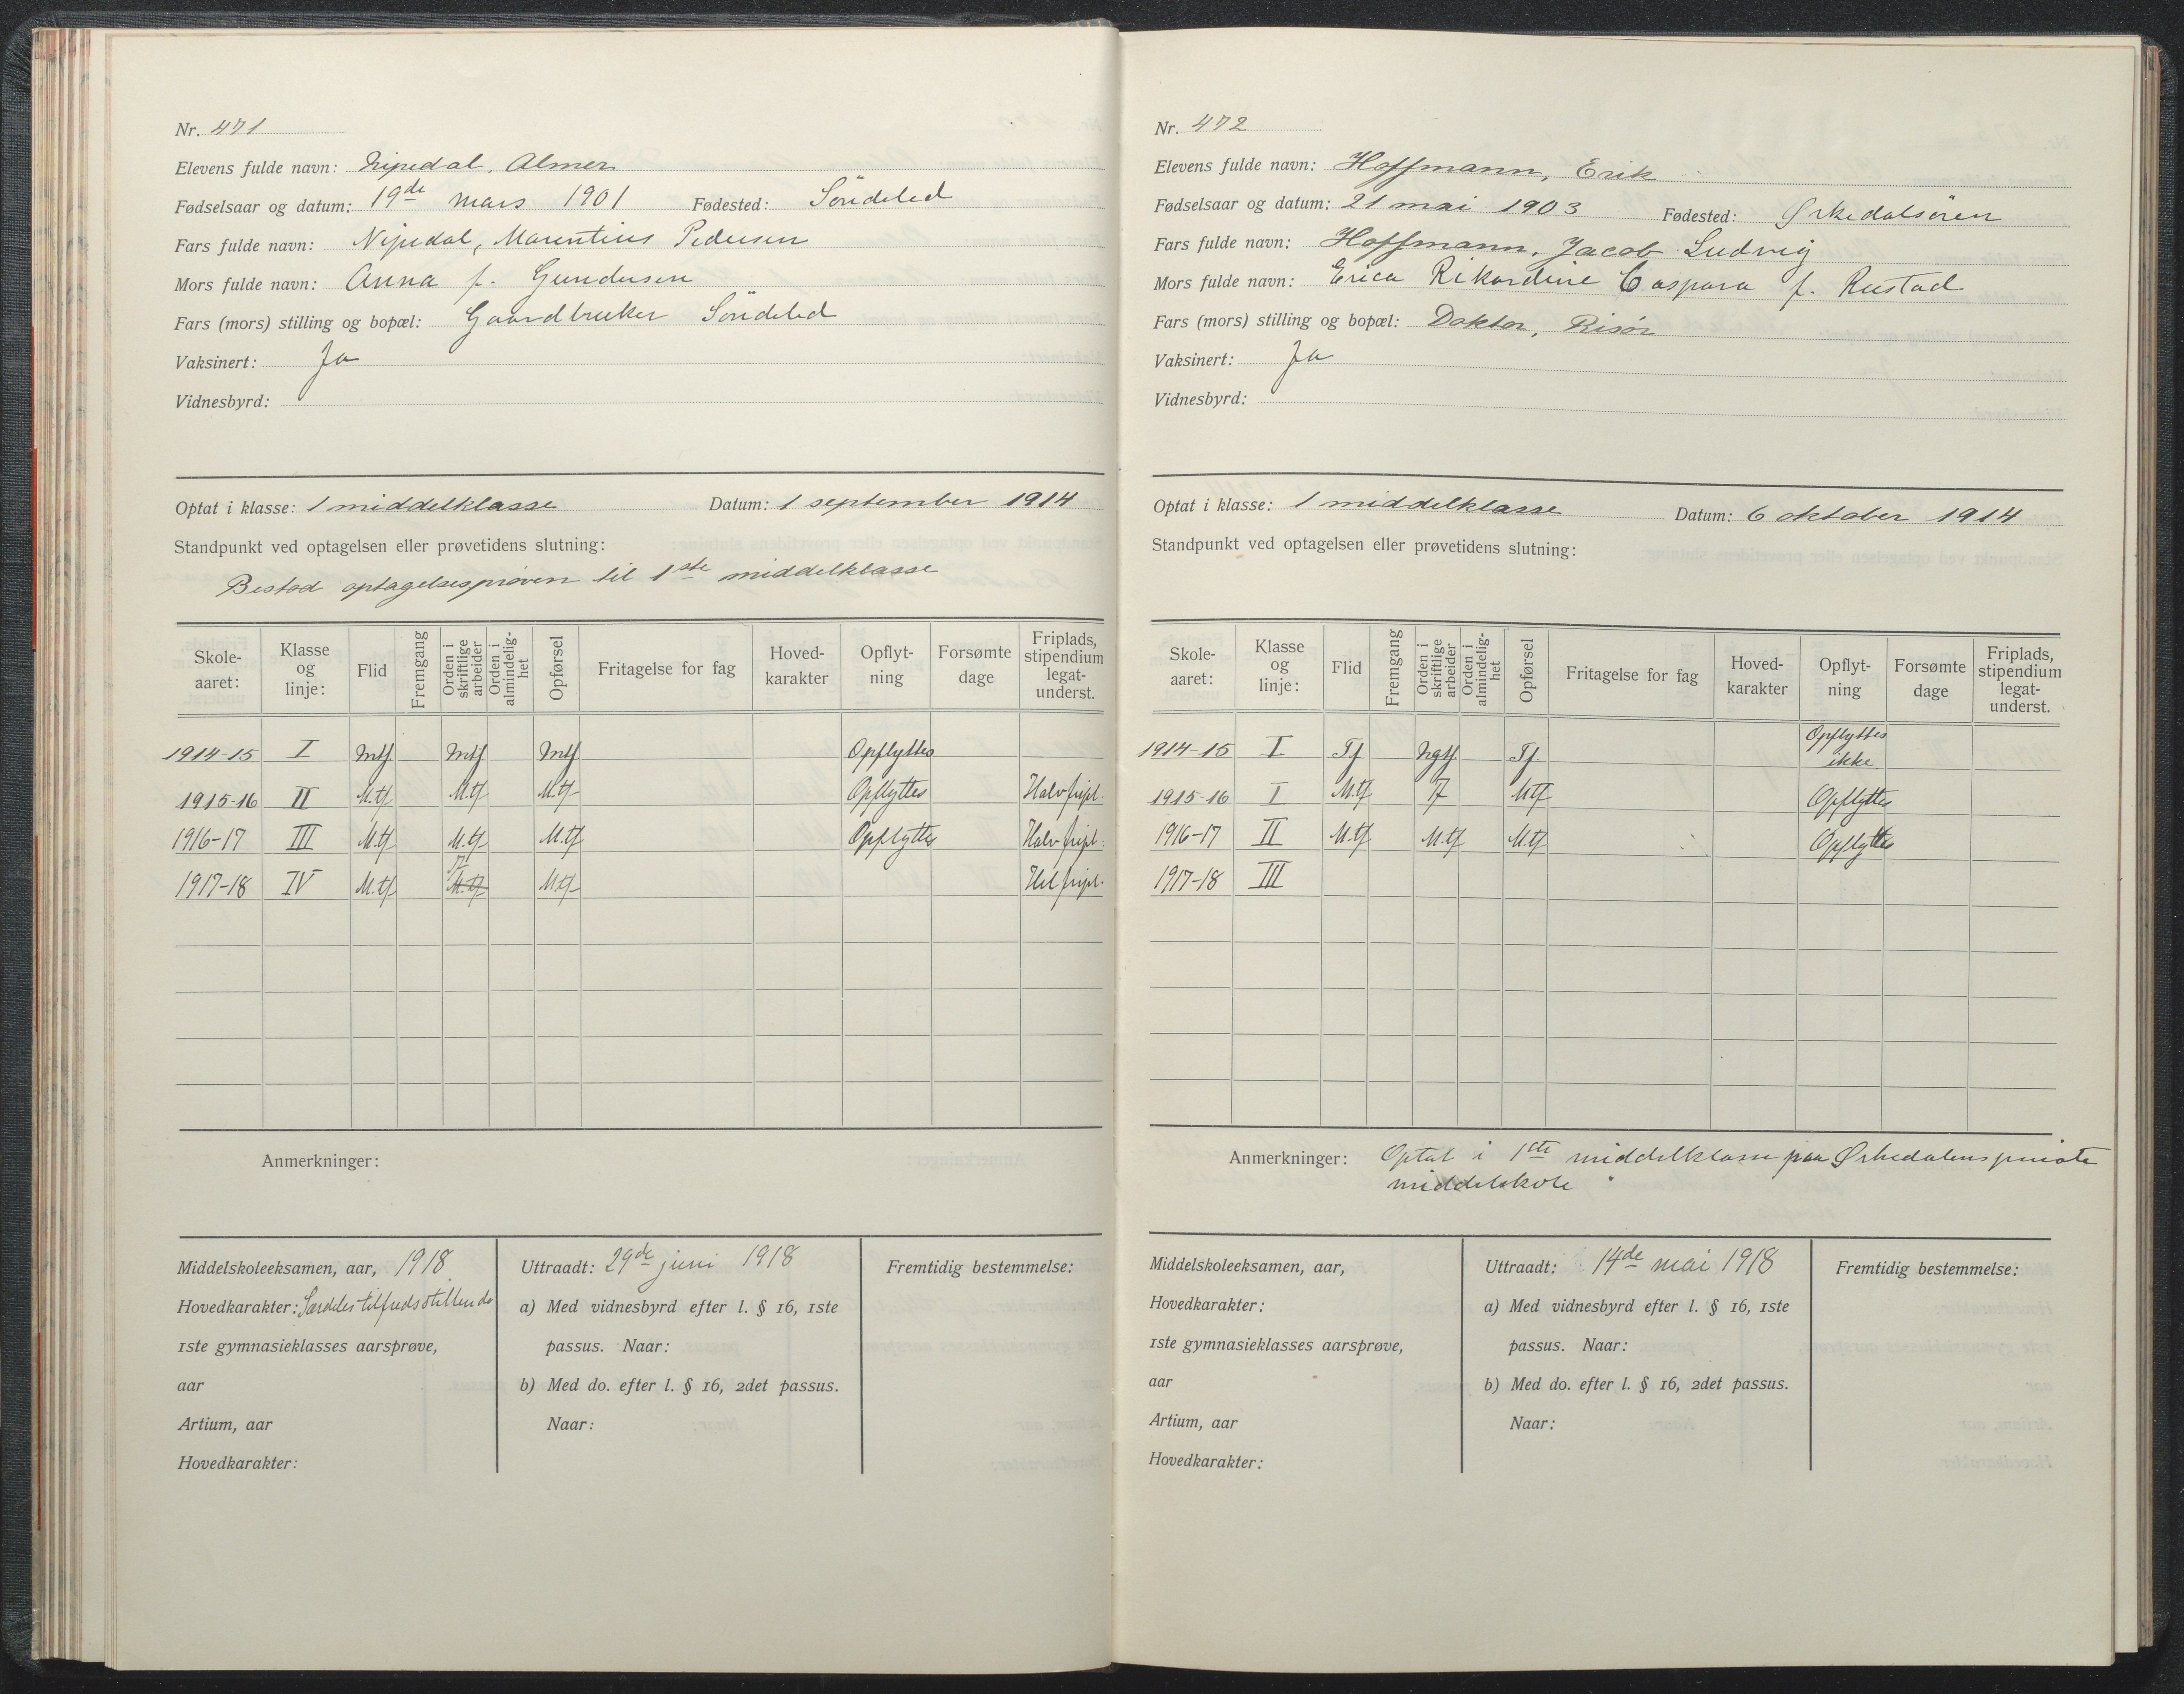 Nr. 471
Elevens fulde navn: Nipedal, Almer
Fødselsaar og datum: 19de mars 1901 Fødested: Söndeled
Fars fulde navn: Nipedal, Marentius Pedersen
Mors fulde navn: Anna f. Gundersen
Fars (mors) stilling og bopæl: Gaardbruker Söndeled
Vaksinert: Ja
Vidnesbyrd:
Optat i klasse: 1 middelklasse Datum: 1 september 1914
Standpunkt ved optagelsen eller prøvetidens slutning:
Bestod optagelsesprøven til 1ste middelklasse
Skoleaaret: Klasse og linje: Flid Fremgang Orden i skriftlige arbeider Orden i almindelighet Opførsel Fritagelse for fag Hovedkarakter Opflytning Forsømte dage Friplads, stipendium legatunderst.
1914-15 I Mtf Mtf Mtf Opflyttes
1915-16 II M.tf M.tf M.tf Opflyttes Halv fripl.
1916-17 III M.tf M.tf M.tf Opflyttes Halv fripl.
1917-18 IV M.tf Tf M.tf M.tf Hel fripl.
Anmerkninger:
Middelskoleeksamen, aar, 1918
Hovedkarakter: Særdeles tilfredsstillende
1ste gymnasieklasses aarsprøve,
aar
Artium, aar
Hovedkarakter:
Uttraadt: 29de juni 1918
a) Med vidnesbyrd efter l. § 16, 1ste
passus. Naar:
b) Med do. efter l. § 16, 2det passus.
Naar:
Fremtidig bestemmelse:
Nr. 472
Elevens fulde navn: Hoffmann, Erik
Fødselsaar og datum: 21 mai 1903 Fødested: Ørkedalsøren
Fars fulde navn: Hoffmann, Jacob Ludvig
Mors fulde navn: Erica Rikardine Caspara f. Rustad
Fars (mors) stilling og bopæl: Doktor, Risør
Vaksinert: Ja
Vidnesbyrd:
Optat i klasse: 1 middelklasse Datum: 6 oktober 1914
Standpunkt ved optagelsen eller prøvetidens slutning:
Skoleaaret: Klasse og linje: Flid Fremgang Orden i skriftlige arbeider Orden i almindelighet Opførsel Fritagelse for fag Hovedkarakter Opflytning Forsømte dage Friplads, stipendium legatunderst.
1914-15 I Tf Ngtf Tf Opflyttes ikke
1915-16 I M.tf Tf Mtf Opflyttes
1916-17 II M.tf M.tf M.tf Opflyttes
1917-18 III
Anmerkninger: Optat i 1ste middelklasse paa Ørkedalens private
middelskole
Middelskoleeksamen, aar,
Hovedkarakter:
1ste gymnasieklasses aarsprøve,
aar
Artium, aar
Hovedkarakter:
Uttraadt: 14de mai 1918
a) Med vidnesbyrd efter l. § 16, 1ste
passus. Naar:
b) Med do. efter l. § 16, 2det passus.
Naar:
Fremtidig bestemmelse: